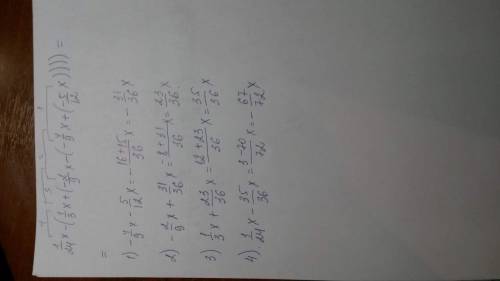 4 3 2 1
1/24 x-(1/3 x+(-2/9 x-(-4/9 x+(-5/12 x))))) =
=
1) -4/9 x - 5/12 x = -16+15/36 x = -31/36 x
2) -2/9 x + 31/36 x = -8+31/36 x = 23/36 x
3) 1/3 x + 23/36 x = 12+23/36 x = 35/36 x
4) 1/24 x - 35/36 x = 3-70/72 x = -67/72 x